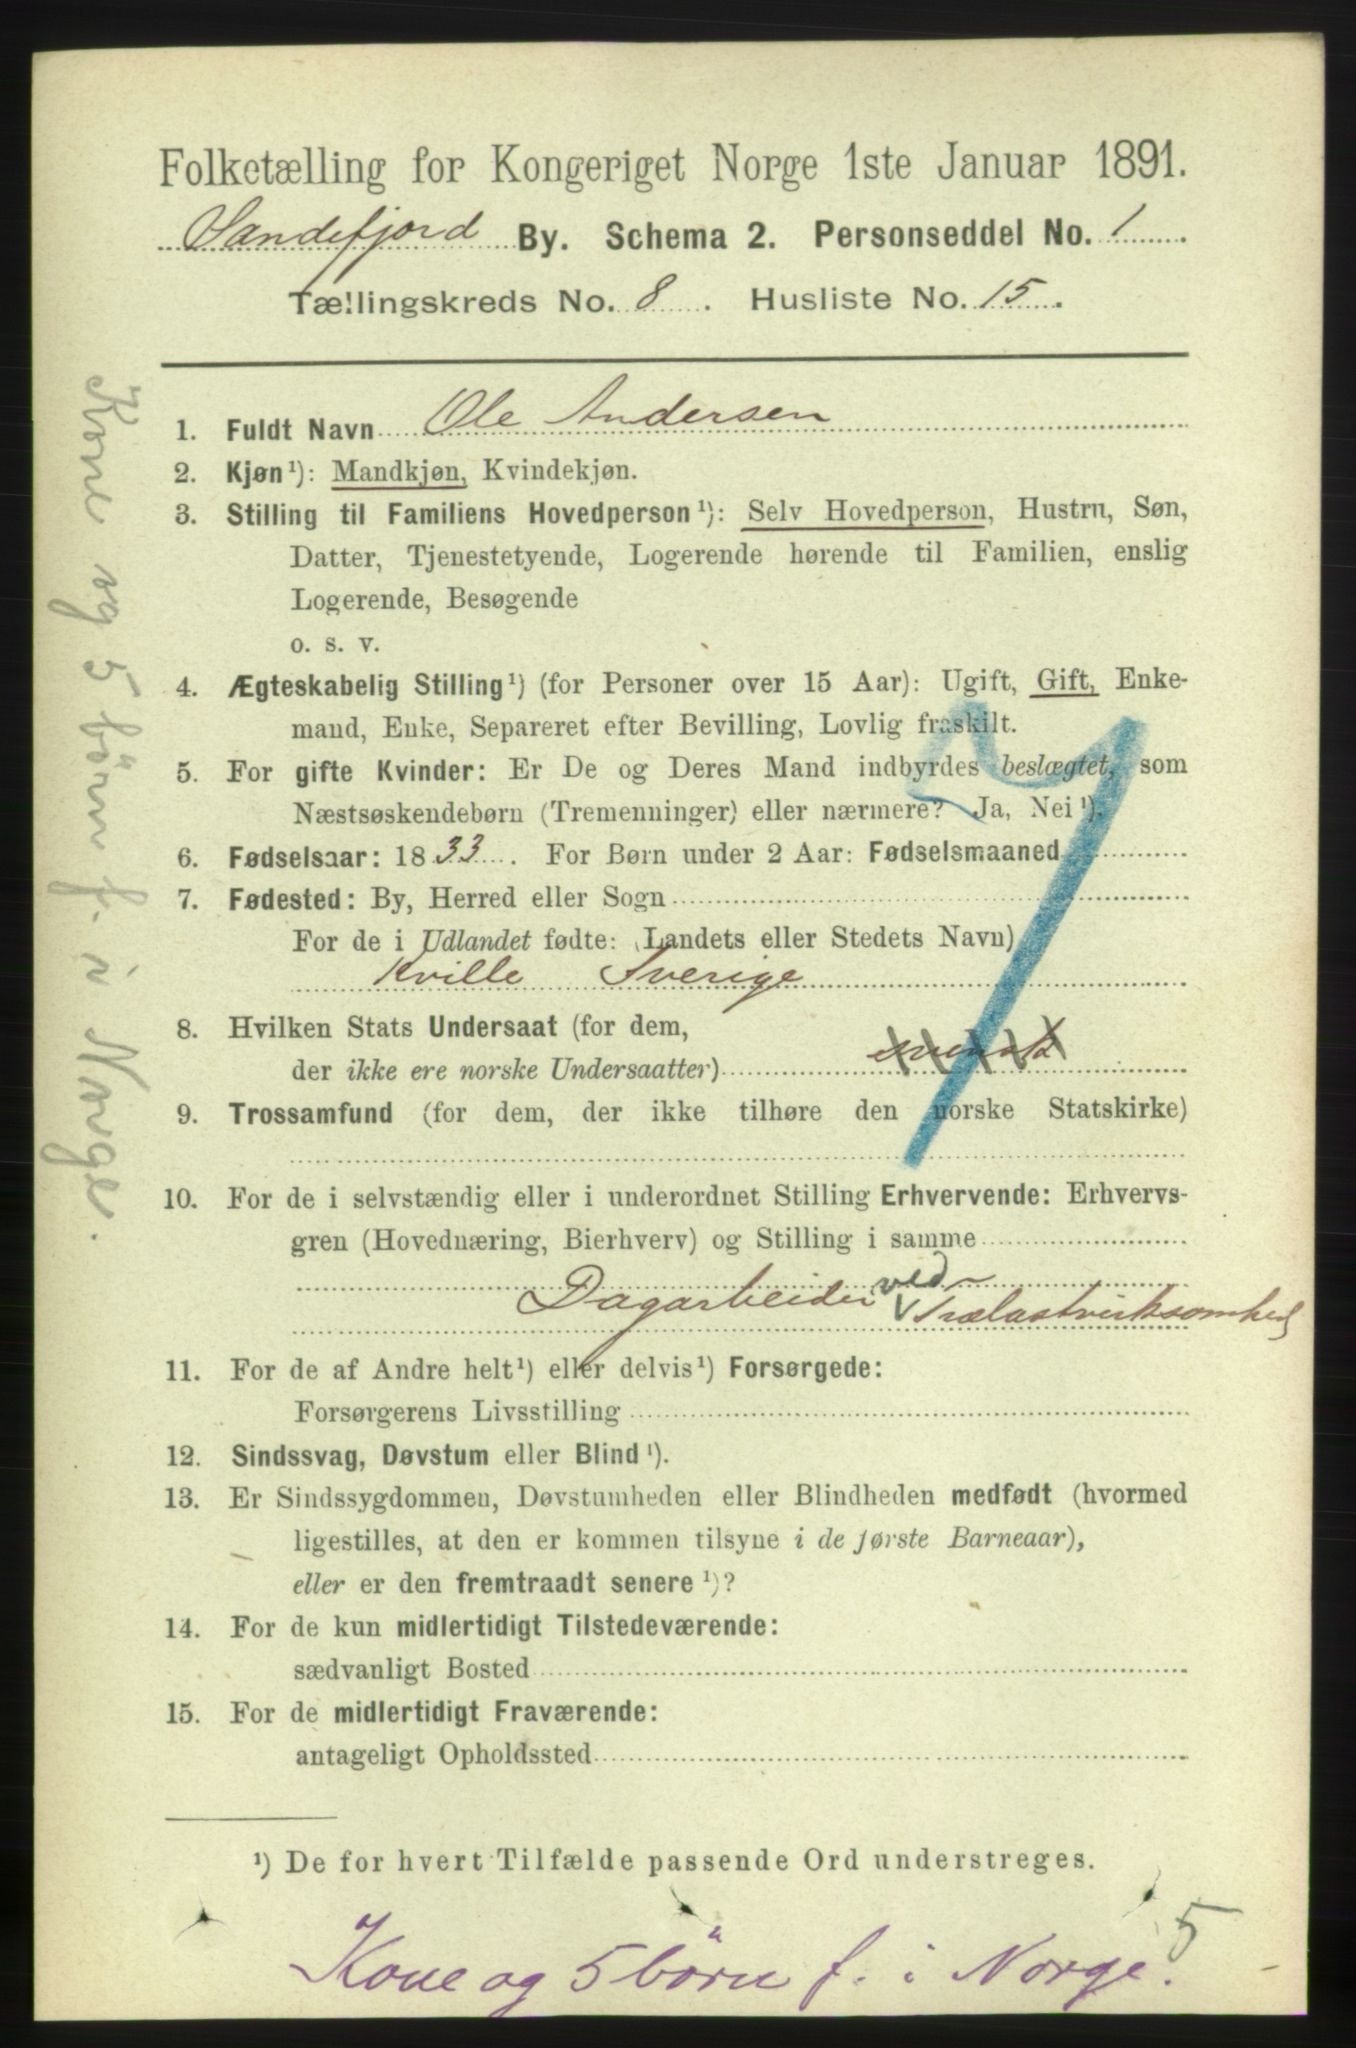 Folketælling for Kongeriget Norge 1ste Januar 1891.
Sandefjord By. Schema 2. Personseddel No. 1.
Tællingskreds No. 8. Husliste No. 15.
1. Fuldt Navn Ole Andersen
2. Kjøn¹): Mandkjøn, Kvindekjøn.
3. Stilling til Familiens Hovedperson¹): Selv Hovedperson, Hustru, Søn,
Datter, Tjenestetyende, Logerende hørende til Familien, enslig
Logerende, Besøgende
o. s. v.
4. Ægteskabelig Stilling¹) (for Personer over 15 Aar): Ugift, Gift, Enke-
mand, Enke, Separeret efter Bevilling, Lovlig fraskilt.
5. For gifte Kvinder: Er De og Deres Mand indbyrdes beslægtet, som
Næstsøskendebørn (Tremenninger) eller nærmere? Ja, Nei¹).
6. Fødselsaar: 1833. For Børn under 2 Aar: Fødselsmaaned
7. Fødested: By, Herred eller Sogn
For de i Udlandet fødte: (Landets eller Stedets Navn)
Kville Sverige
8. Hvilken Stats Undersaat (for dem,
der ikke ere norske Undersaatter) svensk
9. Trossamfund (for dem, der ikke tilhøre den norske Statskirke)
10. For de i selvstændig eller i underordnet Stilling Erhvervende: Erhvervs-
gren (Hovednæring, Bierhverv) og Stilling i samme
Dagarbeider ved Trælastvirksomhed
11. For de af Andre helt¹) eller delvis¹) Forsørgede:
Forsørgerens Livsstilling
12. Sindssvag, Døvstum eller Blind¹).
13. Er Sindssygdommen, Døvstumheden eller Blindheden medfødt (hvormed
ligestilles, at den er kommen tilsyne i de første Barneaar),
eller er den fremtraadt senere¹)?
14. For de kun midlertidigt Tilstedeværende:
sædvanligt Bosted
15. For de midlertidigt Fraværende:
antageligt Opholdssted
¹) De for hvert Tilfælde passende Ord understreges.
5
Kone og 5 börn f. i Norge.
Kone og 5 börn f. i Norge.